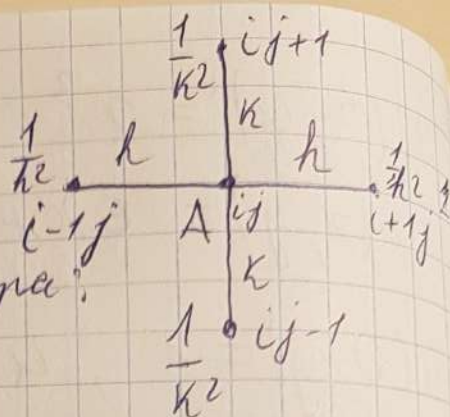 1/k² ij+1
k
1/h² h h 1/h²
i-1j A ij i+1j
k
ра:
1/k² ij-1